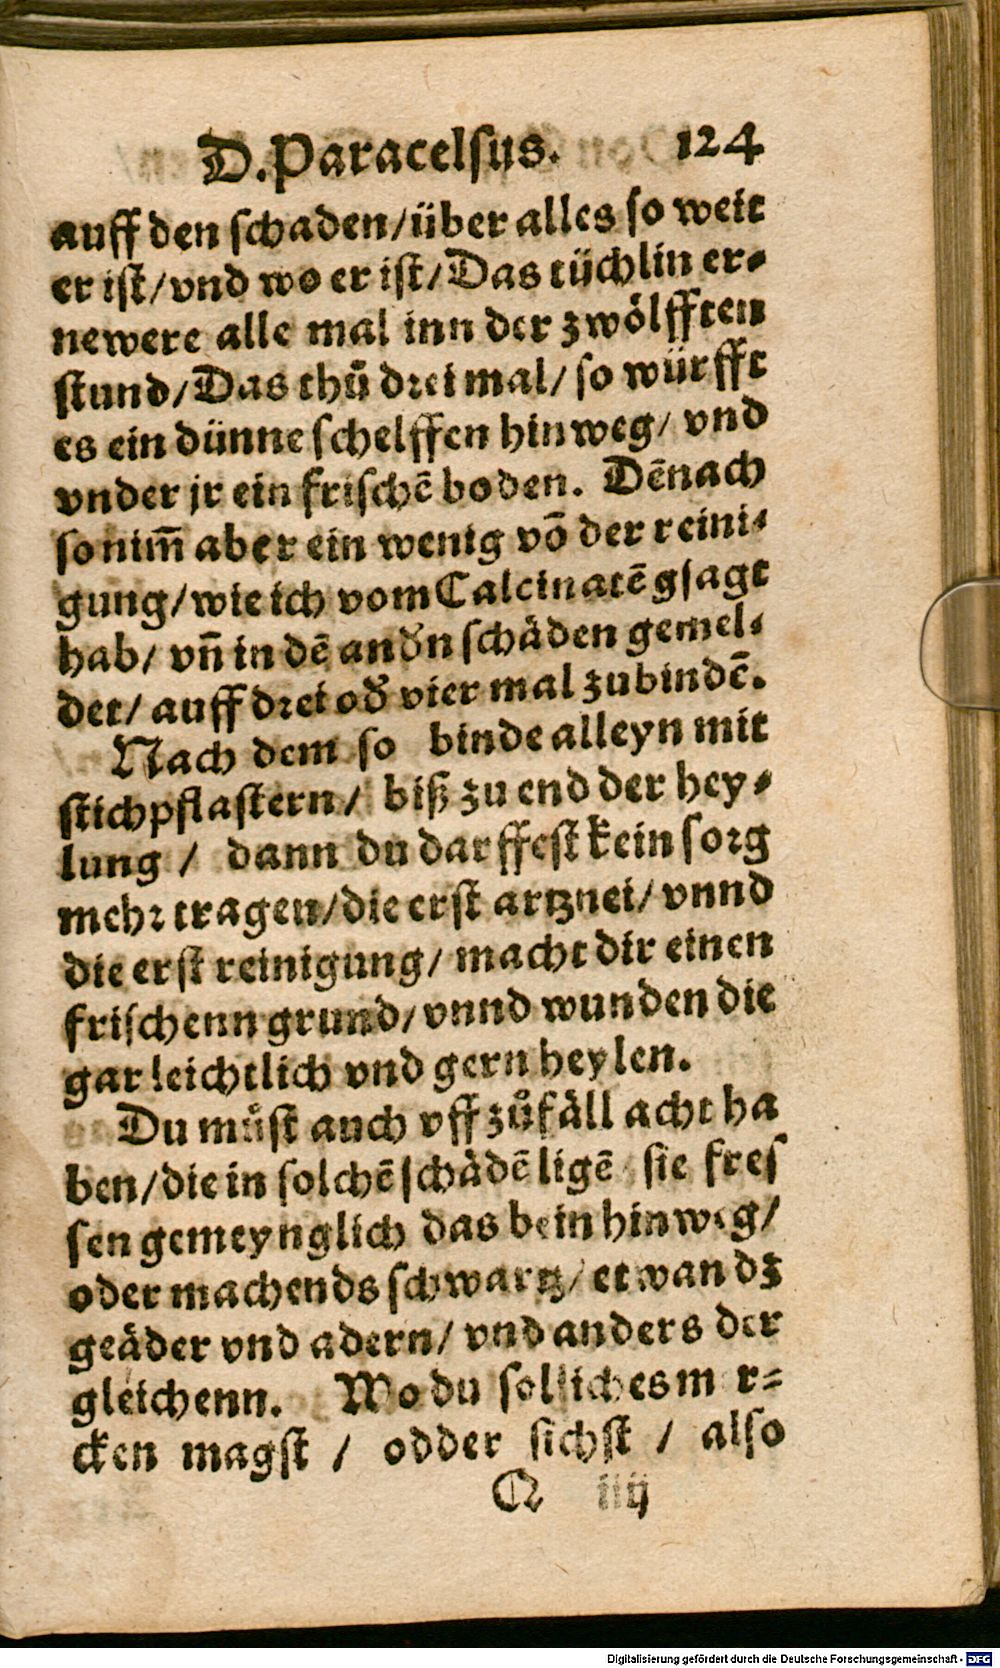 D. Paracelsus. 124
auff den schaden/über alles so weit
er ist/vnd wo er ist/Das tüchlin er-
newere alle mal inn der zwölfften
stund/Das thů drei mal/ so würfft
es ein dünne schelffen hinweg/ vnd
vnder jr ein frischē boden. Dēnach
so nim̄ aber ein wenig vō der reini-
gung/wie ich vom Calcinatē gsagt
hab/ vn̄ in dē andn schäden gemel-
det/ auff drei od vier mal zubindē.
Nach dem so binde alleyn mit
stichpflastern/ biß zu end der hey-
lung / dann du darffest kein sorg
mehr tragen/die erst artznei/ vnnd
die erst reinigung/ macht dir einen
frischenn grund/vnnd wunden die
gar leichtlich vnd gern heylen.
Du můst auch vff zůfäll acht ha
ben/die in solchē schädē ligē sie fres
sen gemeynglich das bein hinweg/
oder machends schwartz/ etwan dz
geäder vnd adern/ vnd anders der
gleichenn. Wo du solliches m r-
cken magst / odder sichst / also
Q iiij
Digitalisierung gefördert durch die Deutsche Forschungsgemeinschaft - DFG